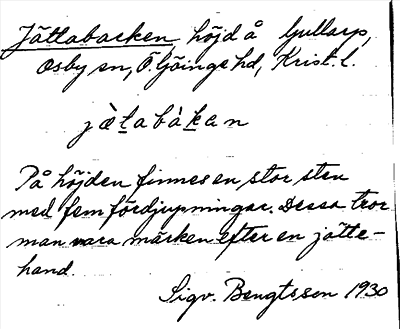 Jättabacken, höjd å Gullarp,
Osby sn, Ö. Göinge hd, Krist. l.
jὰtabàkan
På höjden finnes en stor sten
med fem fördjupningar. Dessa tror
man vara märken efter en jätte-
hand.
Sigv. Bengtsson 1930